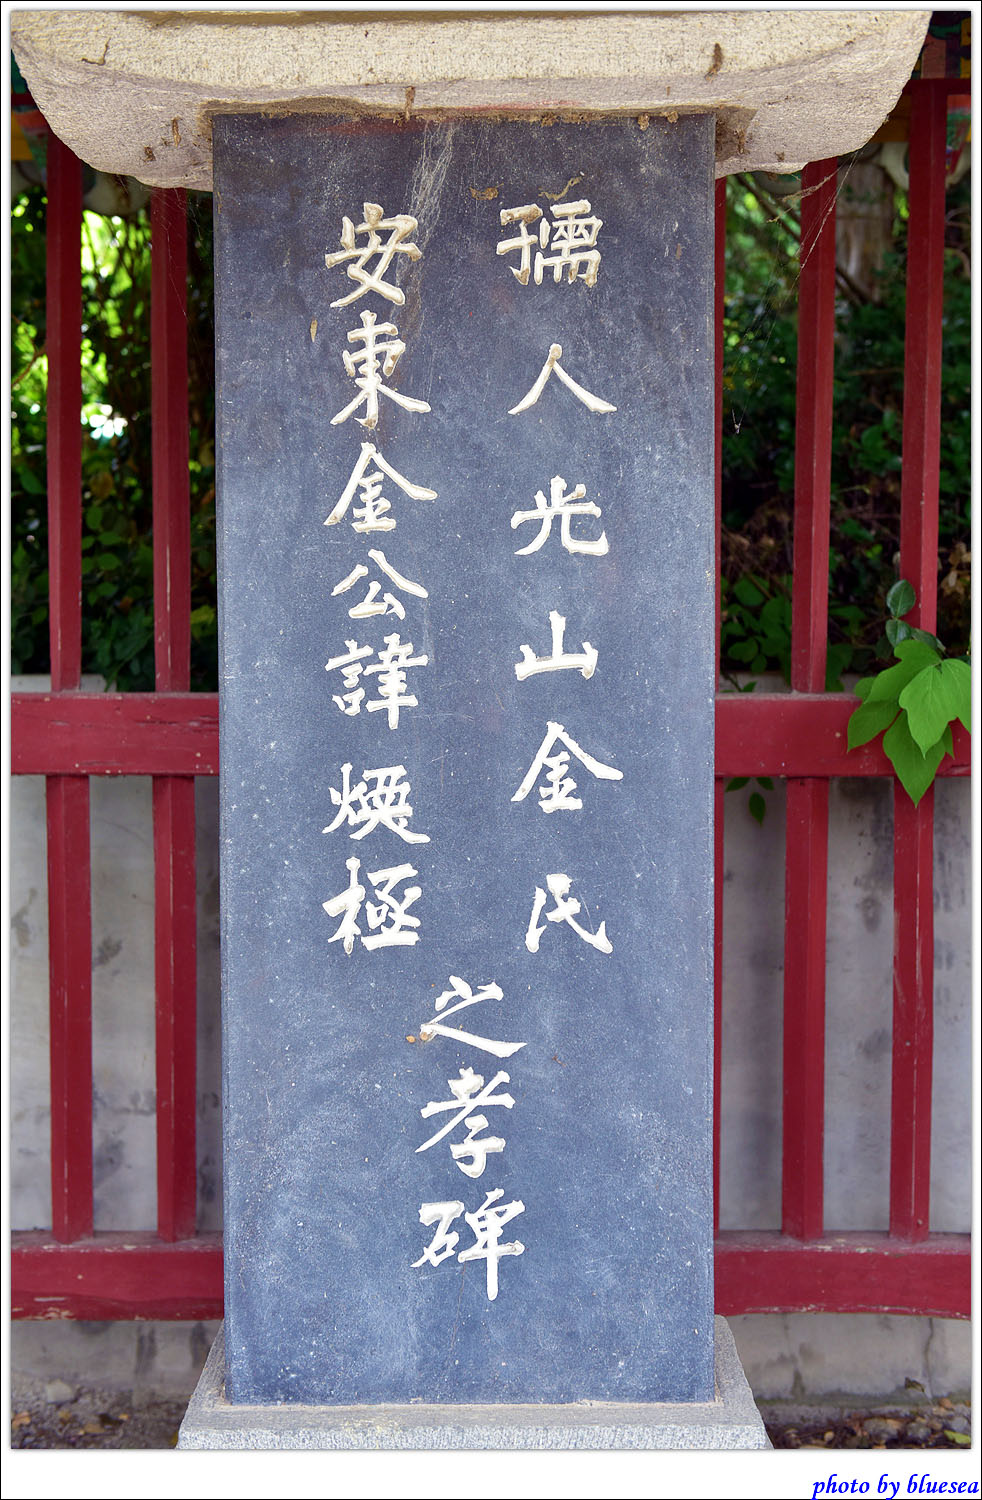 孺人光山金氏
安東金公諱煥極
之孝碑
photo by bluesea